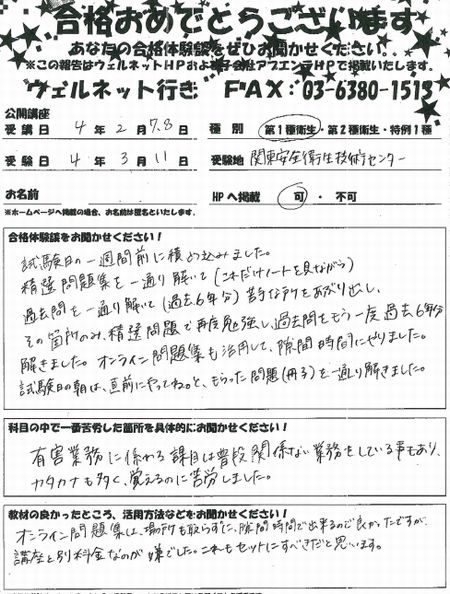 合格おめでとうございます
あなたの合格体験談をぜひお聞かせください。
※この報告はウェルネットHPおよび子会社アプエンテHPで掲載いたします。
ウェルネット行き FAX:03-6380-1513
公開講座
受講日 4年2月7.8日 種別 第1種衛生・第2種衛生・特例1種
受験日 4年3月11日 受験地 関東安全衛生技術センター
お名前 HPへ掲載 可・不可
※ホームページへ掲載の場合、お名前は匿名といたします。
合格体験談をお聞かせください!
試験日の一週間前に積め込みました。
精選問題集を一通り解いて(これだけノートを見ながら)
過去問を一通り解いて(過去6年分)苦手な所をあぶり出し、
その箇所のみ、精選問題で再度勉強し、過去問をもう一度過去6年分
解きました。オンライン問題集も活用して、隙間時間にやりました。
試験日の朝は、直前にやってね。と、もらった問題(冊子)を一通り解きました。
科目の中で一番苦労した箇所を具体的にお聞かせください!
有害業務に係わる課目は普段関係ない業務をしている事もあり、
カタカナも多く、覚えるのに苦労しました。
教材の良かったところ、活用方法などをお聞かせください!
オンライン問題集は、場所も取らずに、隙間時間で出来るので良かったですが、
講座と別料金なのが嫌でした。これもセットにすべきだと思います。